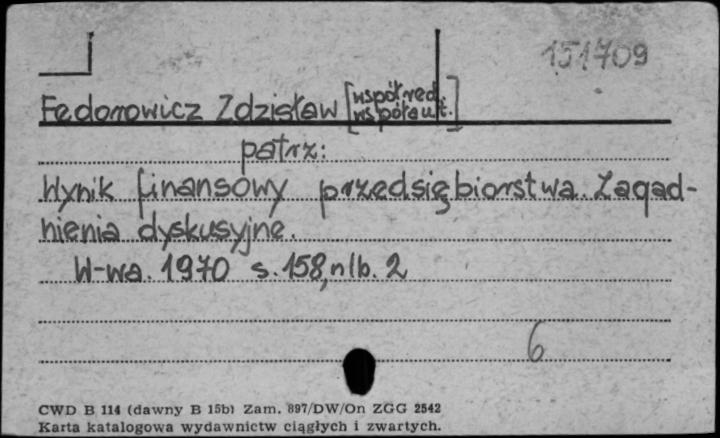 151709
Fedorowicz Zdzisław [współred. współaut.]
patrz:
Wynik finansowy przedsiębiorstwa. Zagad-
nienia dyskusyjne.
W-wa. 1970 s. 158, nlb. 2
6
CWD B 114 (dawny B 15b) Zam. 897/DW/On ZGG 2542
Karta katalogowa wydawnictw ciągłych i zwartych.